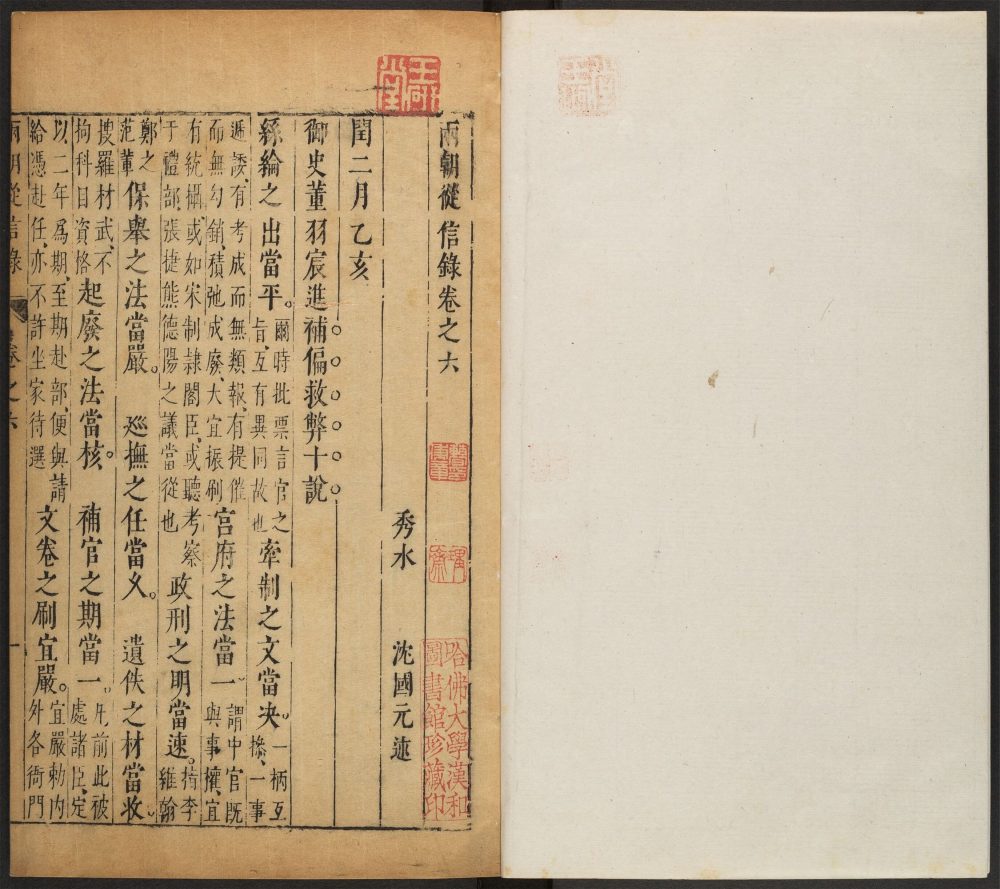 兩朝從信錄卷之六
秀水 沈國元述
閏二月乙亥
御史董羽宸進補偏救弊十說
絲綸之出當平。爾時批票言官之旨、互有異同故也牽制之文當决。一柄互摻、一事
遞諉、有考成而無類報、有提催而無勾銷、積弛成廢、大宜振刷宫府之法當一、謂中官既與事權、宜
有統攝、或如宋制隸閣臣、或聽考察于禮部、張捷熊德陽之議當從也政刑之明當速。指李維翰
鄭之范輩保舉之法當嚴。 廵撫之任當久。 遺佚之材當收、
搜羅材武、不拘科目資格起廢之法當核。 補官之期當一。凡前此被處諸臣、定
以二年爲期、至期赴部、便與請給憑赴任、亦不許坐家待選文卷之刷宜嚴。宜嚴勅内外各衙門
兩朝從信錄 卷之六 一
哈佛大學漢和圖書館珍藏印